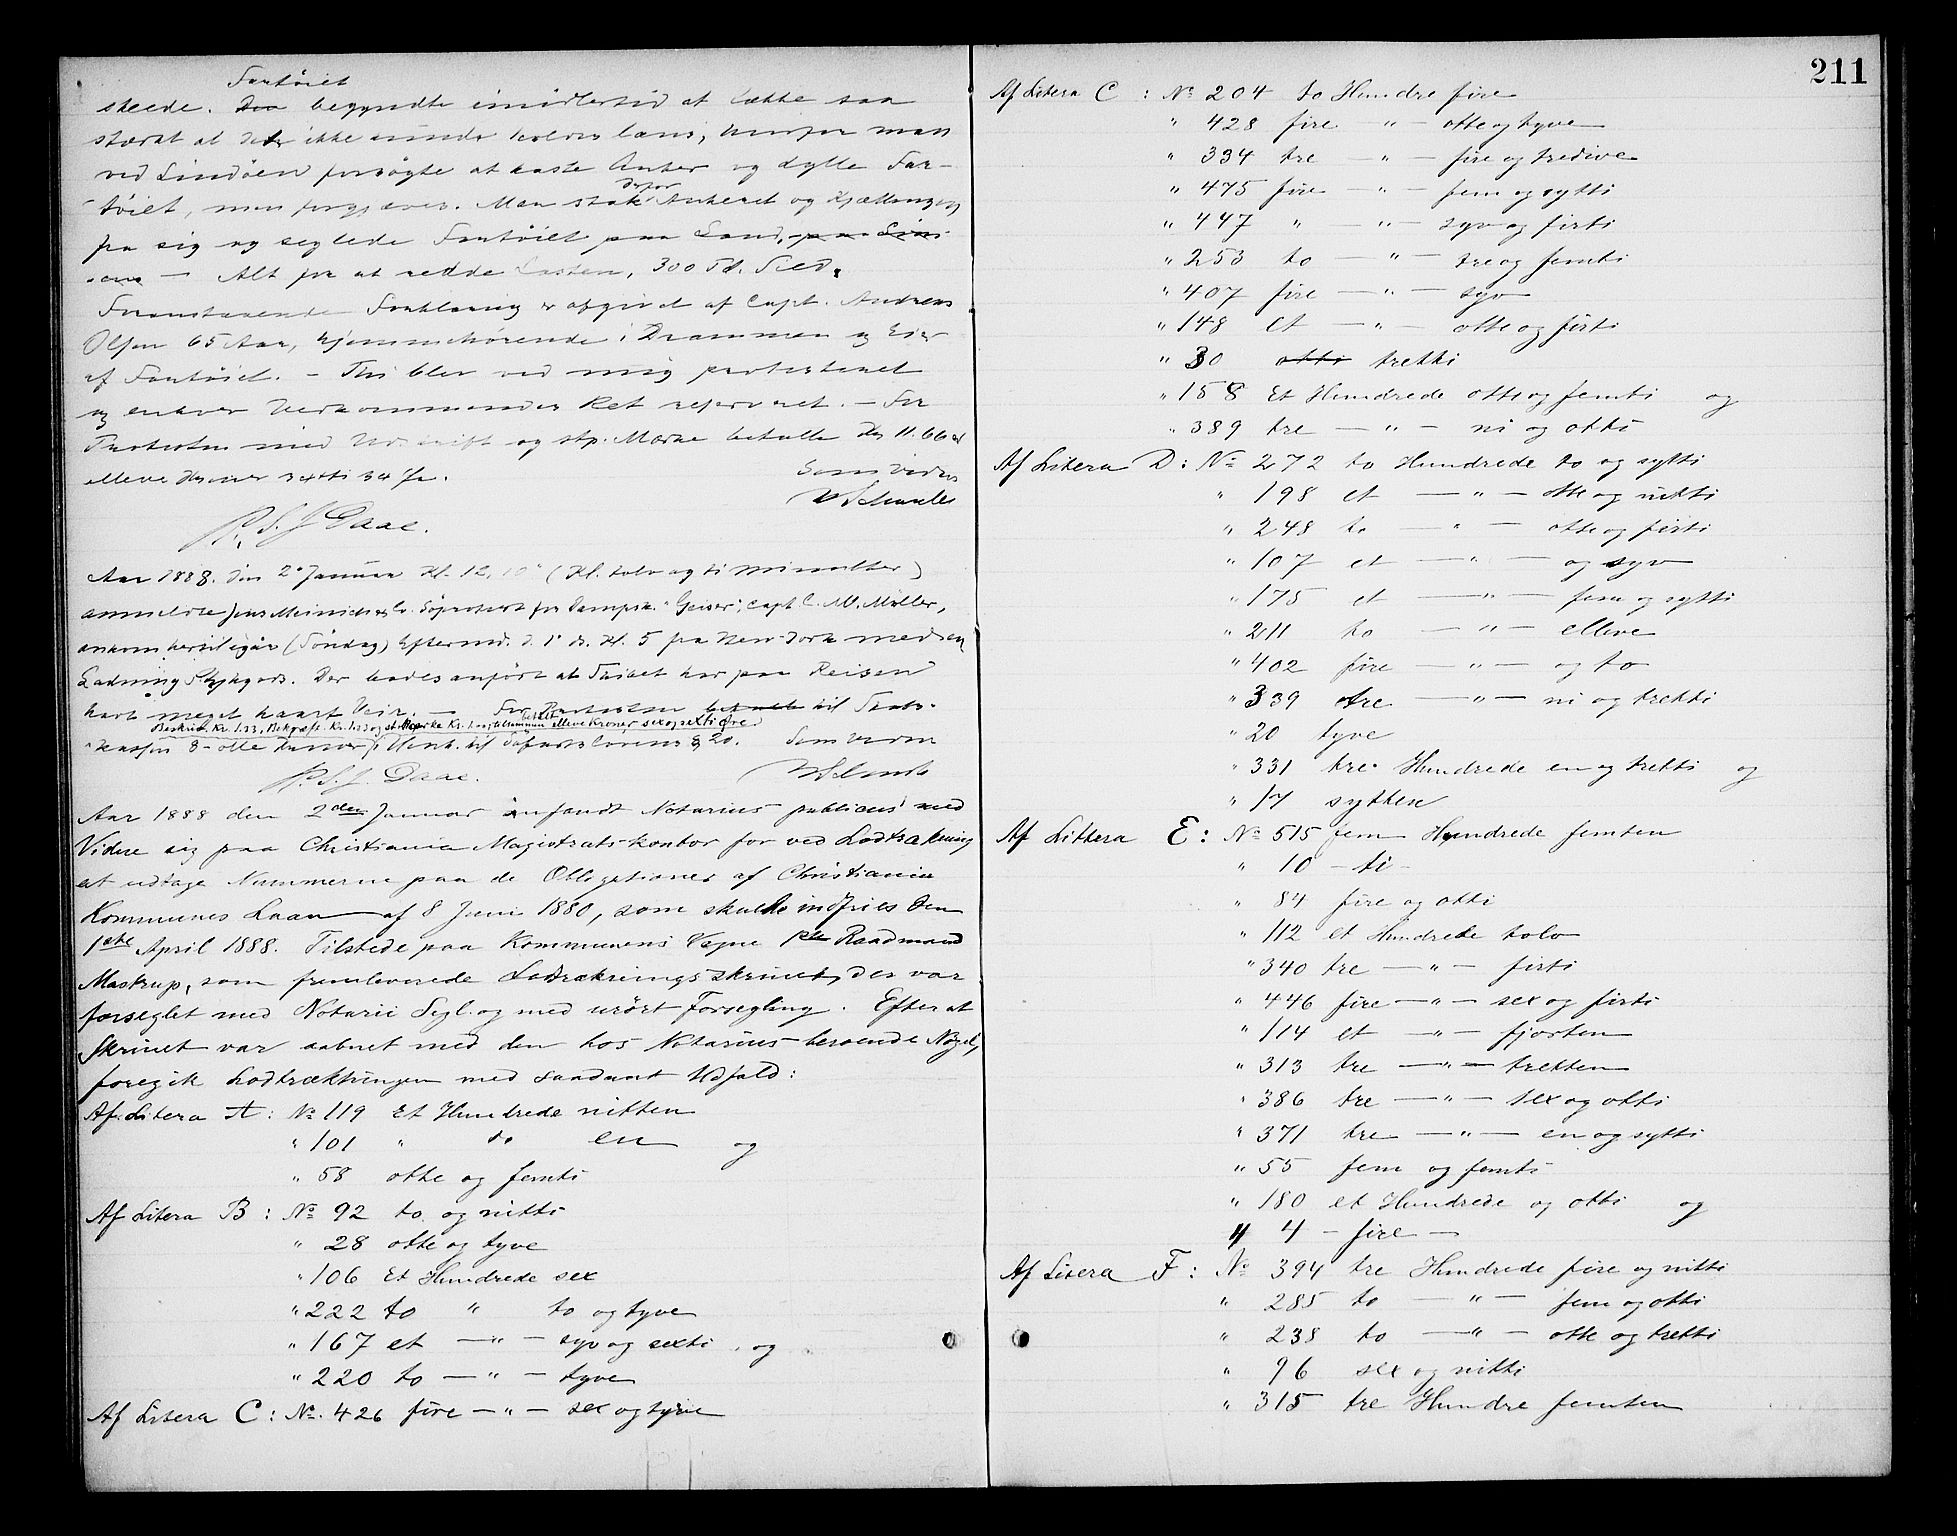 Fartöiet
skeede. begyndte imidlertid at lække saa
stærkt at det ikke kunde holdes læns, hvorfor man
ved Lindöen forsögte at kaste Anker og dylle Far-
töiet, men forgjæves. Man stak derfor Ankeret og Kjættingen
fra sig og seglede Fartöiet paa Land,
Alt for at redde Lasten, 300 Td. Sild.
Foranstaaende Forklaring er afgivet af Capt. Andreas
Olsen 65 Aar, hjemmehörende i Drammen og Eier
af Fartöiet. – Thi blev ved mig protesteret
og enhver Vedkommendes Ret reserveret. – For
Protesten med Udskrift og stp. Mærke betalte Kr 11.66 er
elleve Kroner
Som Vidne
P. S. J. Daae.
Aar 1888. den 2. Januar Kl. 12.10 (Kl. tolv og ti Minutter)
anmeldte Jens Meinich & Co. Söprotest for Dampsk. "Geiser", Capt. C. M. Möller,
ankom hertil igår (Söndag) Eftermd. d. 1 ds. Kl. 5 fra New-York med en
Ladning Stykgods. Der bades anfört at Skibet har paa Reisen
havt meget haart Veir. – For Protesten betalt til Stats-
Beskriv. Kr. 1.33, tilsammen elleve Kroner sex og sexti Öre.
kassen 8 – otte Kroner, 20. Som Vidne
P. S. J. Daae.
Aar 1888 den 2den Januar indfandt Notarius publicus med
Vidne sig paa Christiania Magistrats kontor for ved Lodtrækning
at udtage Nummerne paa de Obligationer af Christiania
Kommunes Laan af 8 Juni 1880, som skulle indfries den
1ste April 1888. Tilstede paa Kommunens Vegne Raadmand
Mastrup, som fremleverede Lodtrækningsskrinet, der var
forseglet med Notarii Segl. og med urört Forsegling. Efter at
Skrinet var aabnet med den hos Notarius beroende Nögel,
foregik Lodtrækningen med saadant Udfald:
Af Litera A: No 119 Et Hundrede nitten
" 101 " do en og
" 58 otte og femti
Af Litera B: No 92 to og nitti
" 28 otte og tyve
" 106 Et Hundrede sex
" 222 to " to og tyve
" 167 et — " — syv og sexti og
" 220 to — " — tyve
Af Litera C: No. 426 fire — " — sex og tyve
211
Af Litera C: No 204 to Hundre fire
" 428 fire — " — otte og tyve
" 334 tre — " — fire og tredive
" 475 fire — " — fem og sytti
" 447 " — " — syv og firti
" 253 to — " — tre og femti
" 407 fire — " — syv
" 148 et — " — otte og firti
" 30 otti tretti
" 158 Et Hundrede otte og femti og
" 389 tre — " — ni og otti
Af Litera D: No 272 to Hundrede to og sytti
" 198 et — " — otte og nitti
" 248 to — " — otte og firti
" 107 et — " — og syv
" 175 et — " — fem og sytti
" 211 to — " — elleve
" 402 fire — " — og to
" 339 tre — " — ni og tretti
" 20 tyve
" 331 tre Hundrede en og tretti og
" 17 sytten
Af Littera E: No 515 fem Hundrede femten
" 10 – ti –
" 84 fire og otti
" 112 et Hundrede tolv
" 340 tre — " — firti
" 446 fire — " — sex og firti
" 114 et — " — fjorten
" 313 tre — " — tretten
" 386 tre — " — sex og otti
" 371 tre — " — en og sytti
" 55 fem og femti
" 180 et Hundrede og otti og
" 4 – fire –
Af Litera F: No 394 tre Hundrede fire og nitti
" 285 to — " — fem og otti
" 238 to — " — otte og tretti
" 96 sex og nitti
" 315 tre Hundre femten